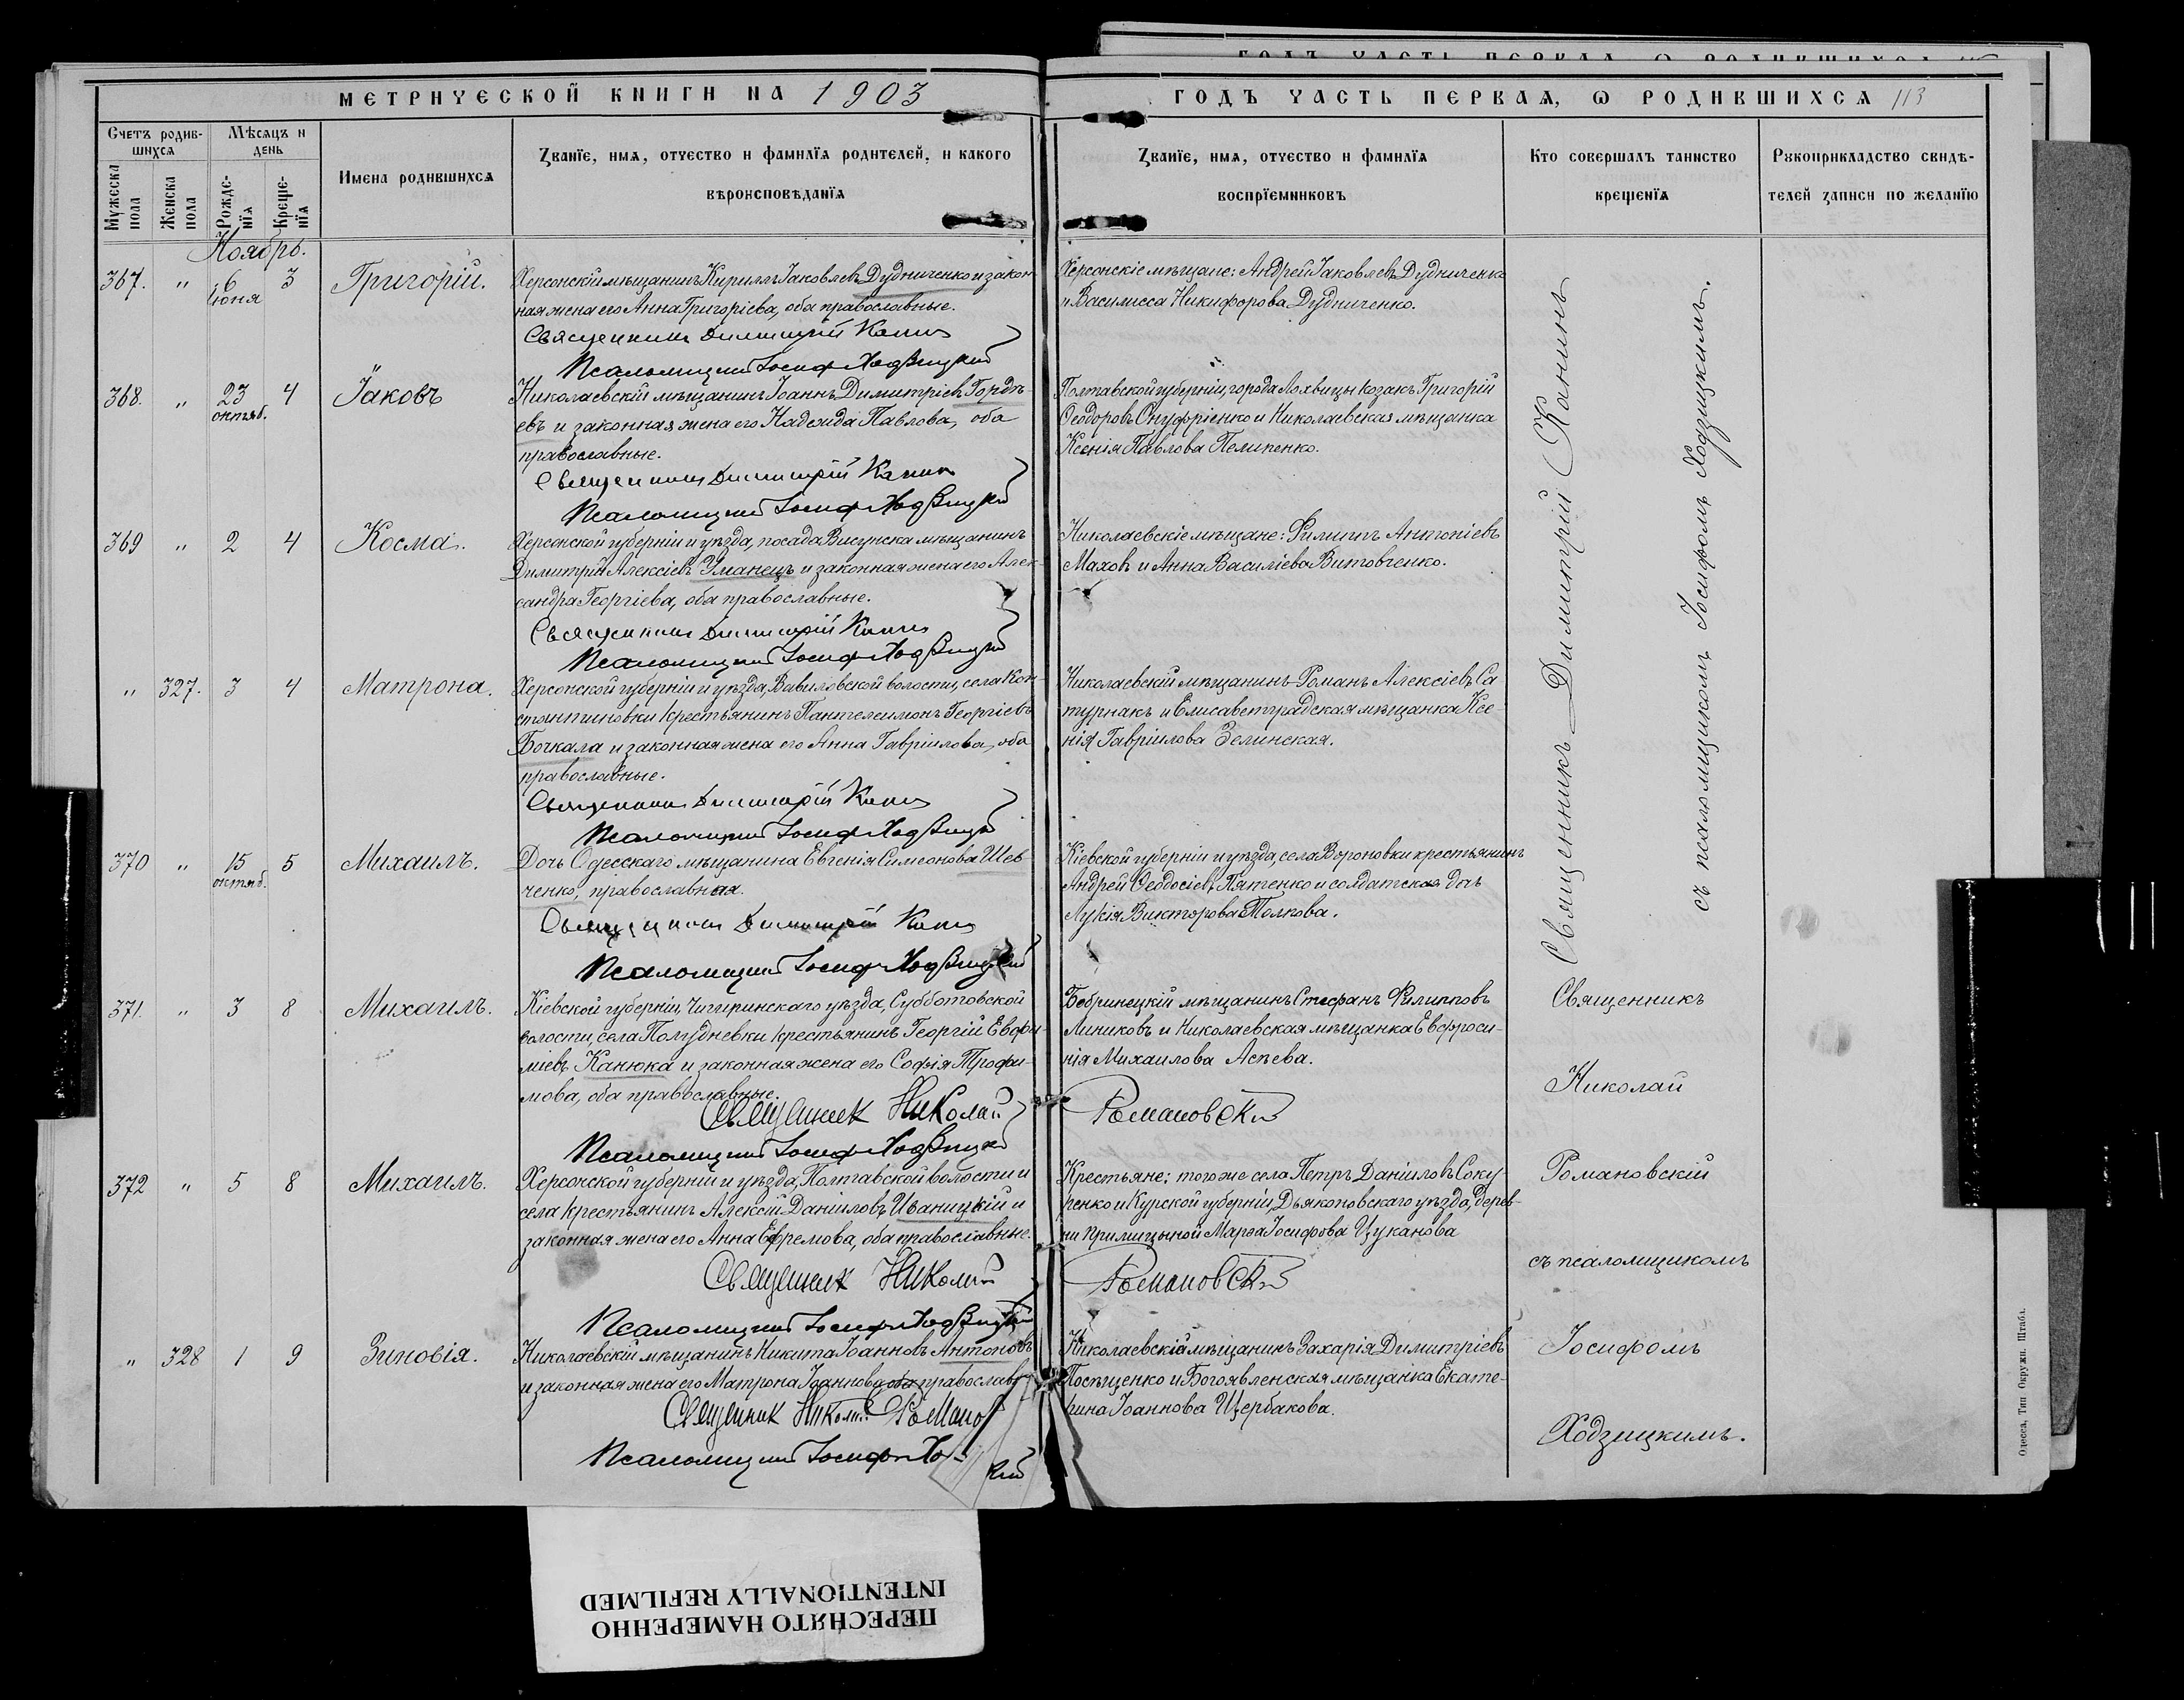 МЕТРИЧЕСКОЙ КНИГИ НА 1903
Счетъ родив-
шихся
Мѣсяцъ и
день
Мужеска
пола
Женска
пола
Рожде-
нїя
Креще-
нїя
Имена родившихся
Званїе, имя, отчество и фамилїя родителей, и какого
вѣроисповѣданїя
Ноябрь.
367. " 6 Іюня 3 Григорій.
Херсонскій мѣщанинъ Кириллъ Іаковлевъ Дудниченко и закон-
ная жена его Анна Григоріева, оба православные.
Священникъ Димитрій Канинъ
Псаломщикъ Іосифъ Ходзицкій
368. " 23 октяб. 4 Іаковъ
Николаевскій мѣщанинъ Іоаннъ Димитріевъ Гордѣ-
евъ и законная жена его Надежда Павлова, оба
православные.
Священникъ Димитрій Канинъ
Псаломщикъ Іосифъ Ходзицкій
369 " 2 4 Косма.
Херсонской губерніи и уѣзда, посада Висунска мѣщанинъ
Димитрій Алексіевъ Уманецъ и законная жена его Алек-
сандра Георгіева, оба православные.
Священникъ Димитрій Канинъ
Псаломщикъ Іосифъ Ходзицкій
" 327. 3 4 Матрона.
Херсонской губерніи и уѣзда, Вавиловской волости, села Кон-
стантиновки крестьянинъ Пантелеимонъ Георгіевъ
Бочкала и законная жена его Анна Гавріилова, оба
православные.
Священникъ Димитрій Канинъ
Псаломщикъ Іосифъ Ходзицкій
370 " 15 октяб. 5 Михаилъ.
Дочь Одесскаго мѣщанина Евгенія Симеонова Шев-
ченко, православная.
Священникъ Димитрій Канинъ
Псаломщикъ Іосифъ Ходзицкій
371. " 3 8 Михаилъ.
Кіевской губерніи, Чигиринскаго уѣзда, Субботовской
волости, села Полудневки крестьянинъ Георгій Евфи-
міевъ Канюка и законная жена его Софія Трофи-
мова, оба православные.
Священникъ Николай
Псаломщикъ Іосифъ Ходзицкій
372 " 5 8 Михаилъ.
Херсонской губерніи и уѣзда, Полтавской волости и
села крестьянинъ Алексій Даніиловъ Иваницкій и
законная жена его Анна Ефремова, оба православные.
Священникъ Николай
Псаломщикъ Іосифъ Ходзицкій
" 328 1 9 Зиновія.
Николаевскій мѣщанинъ Никита Іоанновъ Антоновъ
и законная жена его Матрона Іоаннова, оба православ
Священникъ Николай Романов
Псаломщикъ Іосифъ Хо кій
ГОДЪ ЧАСТЬ ПЕРВАЯ, Ѡ РОДИВШИХСЯ 113
Званїе, имя, отчество и фамилїя
воспрїемниковъ
Кто совершалъ таинство
крещенїя
Рукоприкладство свидѣ-
телей записи по желанїю
Херсонскіе мѣщане: Андрей Іаковлевъ Дудниченко
и Василисса Никифорова Дудниченко.
Полтавской губерніи, города Лохвицы козакъ Григорій
Ѳеодоровъ Онуфріенко и Николаевская мѣщанка
Ксенія Павлова Пелипенко.
Николаевскіе мѣщане: Филиппъ Антоніевъ
Маховъ и Анна Василіева Витовченко.
Николаевскій мѣщанинъ Романъ Алексіевъ Са
турнакъ и Елисаветградская мѣщанка Ксе-
нія Гавріилова Зелинская.
Кіевской губерніи и уѣзда, села Вороновки крестьянинъ
Андрей Ѳеодосіевъ Пятенко и солдатская дочь
Лукія Викторова Толкова.
Бобринецкій мѣщанинъ Стефанъ Филипповъ
Линиковъ и Николаевская мѣщанка Евфроси-
нія Михаилова Аспева.
Романовскій
Крестьяне; того же села Петръ Даніиловъ Соку
ренко и Курской губерніи, Дьяконовскаго уѣзда, дерев-
ни Прилицыной Марѳа Іосифова Цуканова
Романовскій
Николаевскій мѣщанинъ Захарія Димитріевъ
Посѣщенко и Богоявленская мѣщанка Екате-
рина Іоаннова Щербакова.
Священникъ Димитрій Канинъ
съ псаломщикомъ Іосифомъ Ходзицкимъ.
Священникъ
Николай
Романовскій
съ псаломщикомъ
Іосифомъ
Ходзицкимъ.
Одесса, Тип Окружн. Штаба.
ПЕРЕСНЯТО НАМЕРЕННО
INTENTIONALLY REFILMED